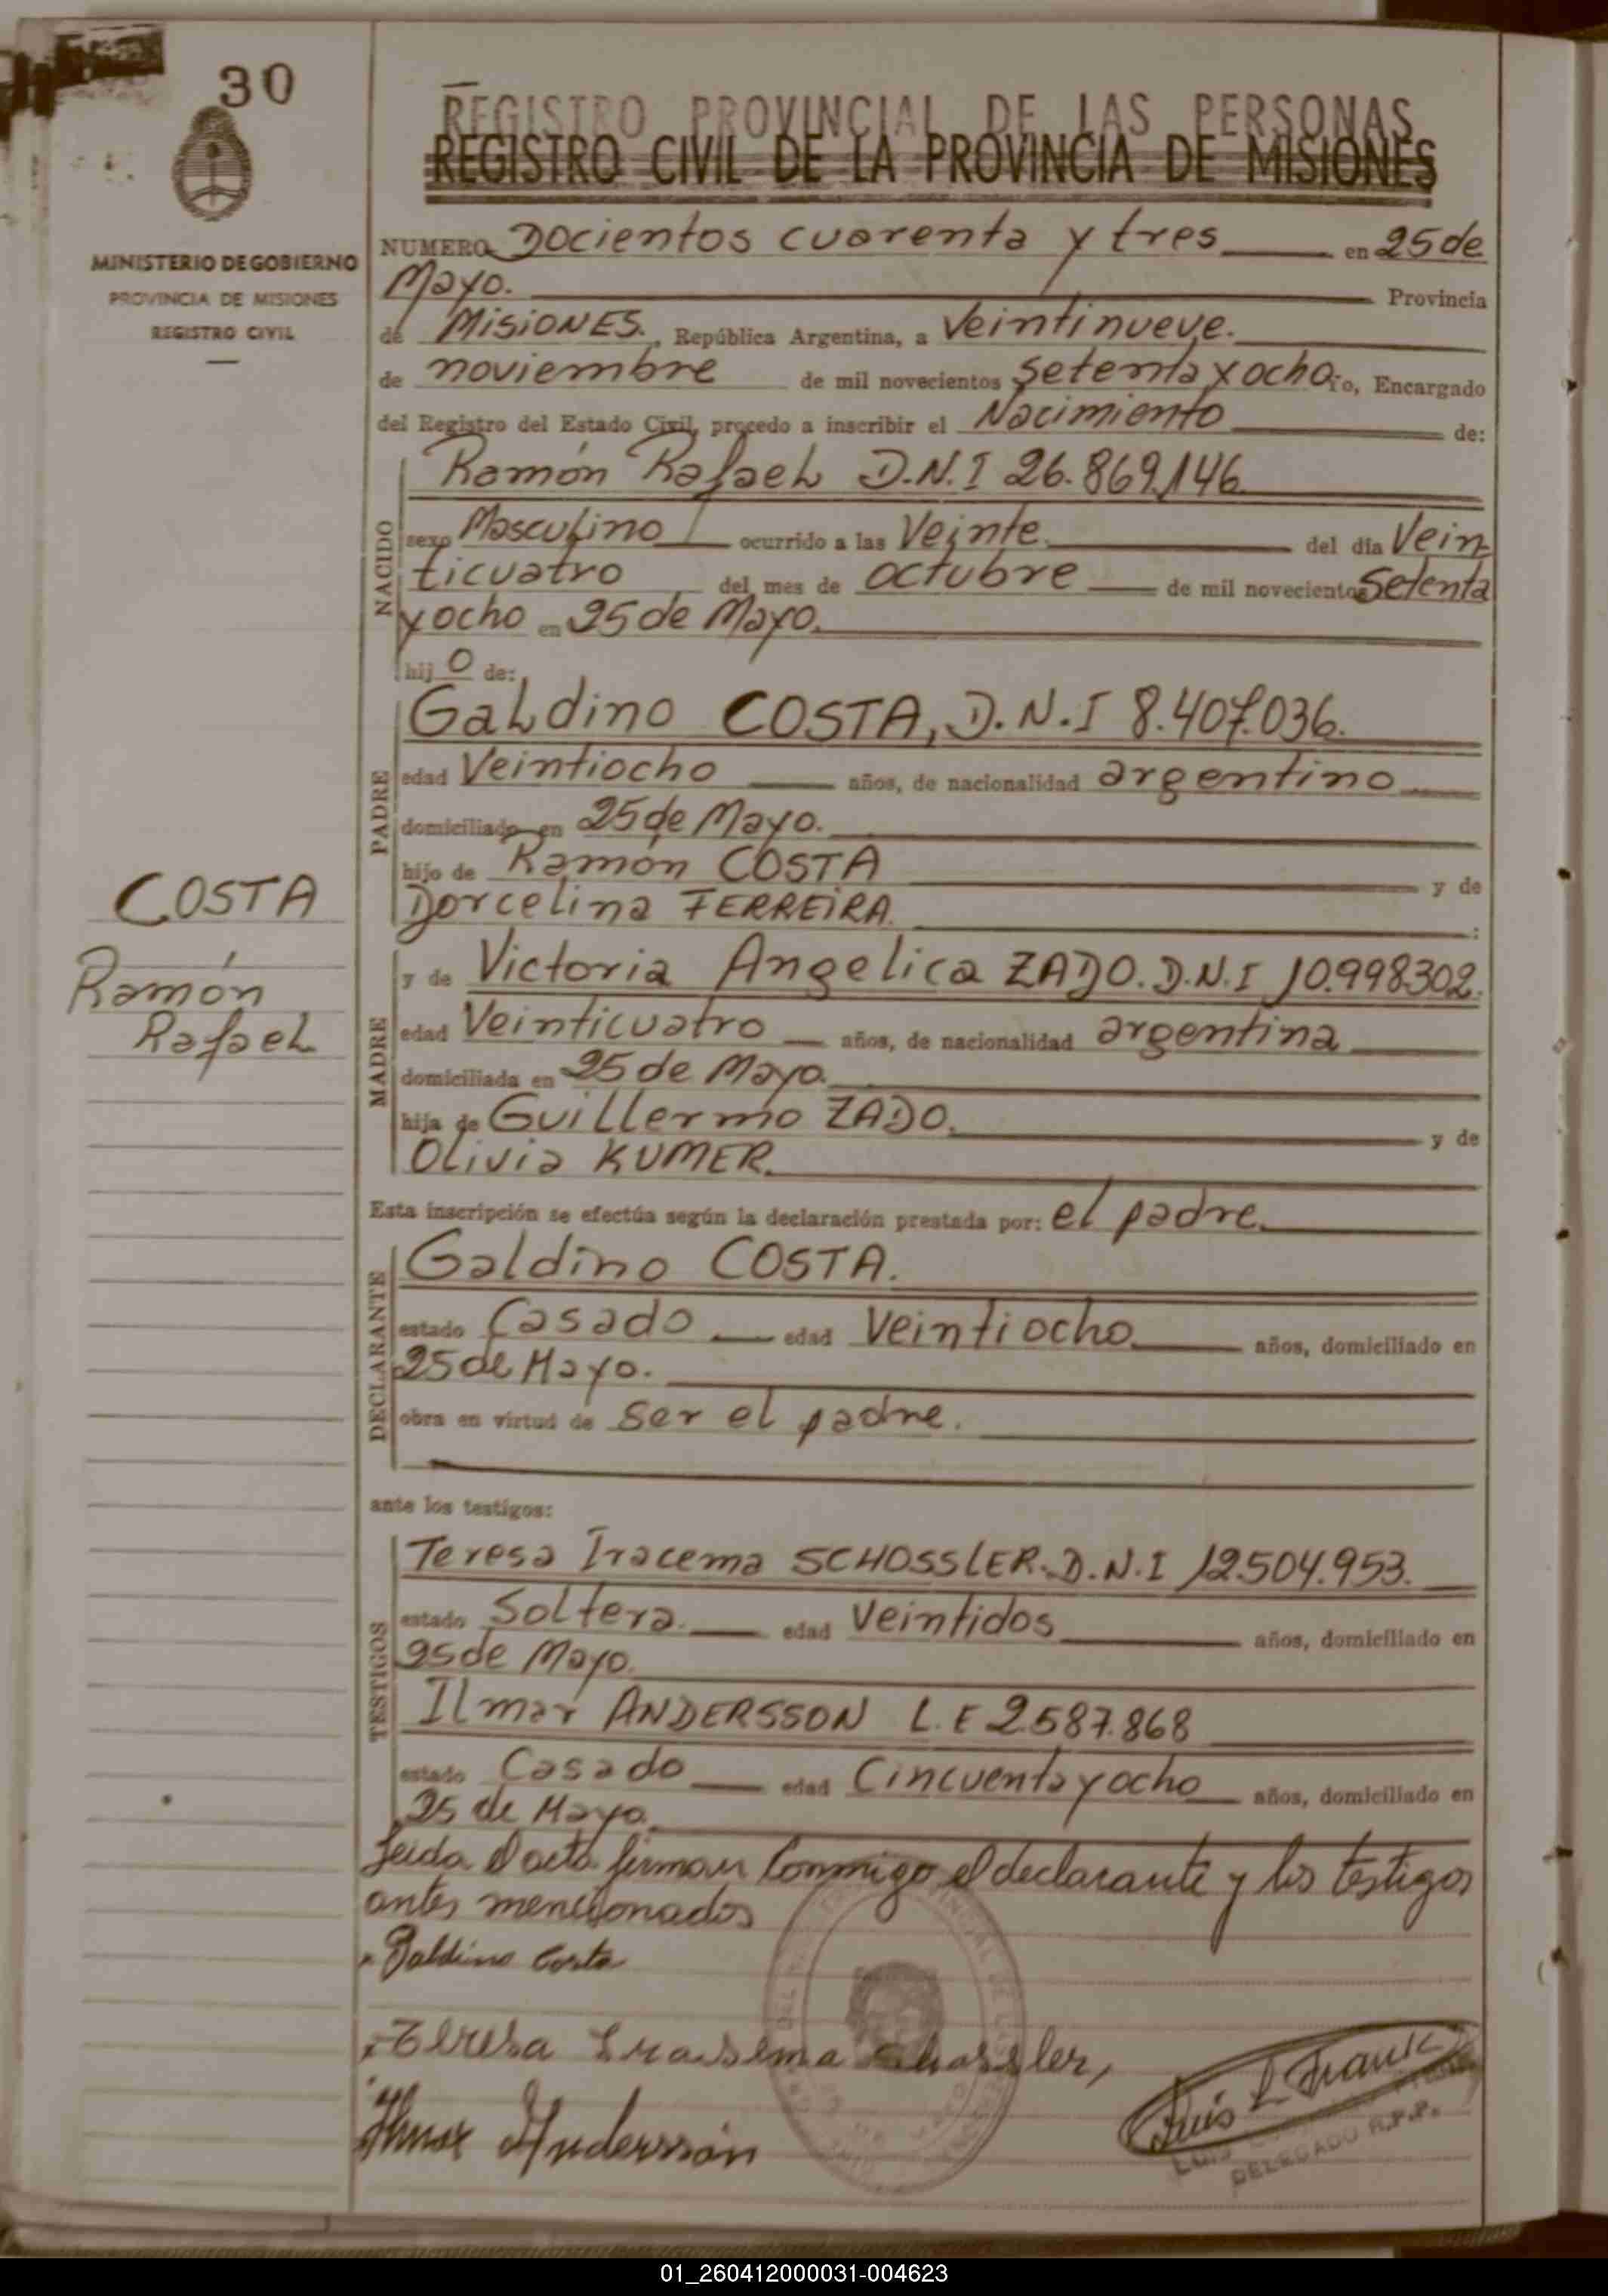 30
MINISTERIO DE GOBIERNO
PROVINCIA DE MISIONES
REGISTRO CIVIL
REGISTRO PROVINCIAL DE LAS PERSONAS
REGISTRO CIVIL DE LA PROVINCIA DE MISIONES
NUMERO Docientos cuarenta y tres en 25 de
Mayo. Provincia
de MISIONES. República Argentina, a Veintinueve.
de noviembre de mil novecientos setenta y ocho Yo, Encargado
del Registro del Estado Civil, procedo a inscribir el Nacimiento de:
NACIDO
Ramón Rafael D.N.I 26.869.146
sexo Masculino ocurrido a las Veinte. del día Vein-
ticuatro del mes de octubre de mil novecientos Setenta
y ocho en 25 de Mayo.
hij o de:
PADRE
Galdino COSTA, D.N.I 8.407.036.
edad Veintiocho años, de nacionalidad argentino
domiciliado en 25 de Mayo.
hijo de Ramón COSTA y de
Dorcelina FERREIRA. :
COSTA
Ramón
Rafael
MADRE
y de Victoria Angelica ZADO. D.N.I 10.998.302.
edad Veinticuatro años, de nacionalidad argentina
domiciliada en 25 de Mayo.
hija de Guillermo ZADO. y de
Olivia KUMER.
Esta inscripción se efectúa según la declaración prestada por: el padre.
DECLARANTE
Galdino COSTA.
estado Casado edad Veintiocho años, domiciliado en
25 de Mayo.
obra en virtud de ser el padre.
ante los testigos:
TESTIGOS
Teresa Iracema SCHOSSLER. D.N.I 12.504.953.
estado Soltera. edad Veintidos años, domiciliado en
25 de Mayo.
Ilmar ANDERSSON L.E 2.587.868
estado Casado edad Cincuenta y ocho años, domiciliado en
25 de Mayo.
Leida el acta firman conmigo el declarante y los testigos
antes mencionados
Galdino Costa
Teresa Irassema Schossler,
Ilmar Andersson
Luis L. Frank
LUIS
DELEGADO R.P.P.
01_260412000031-004623